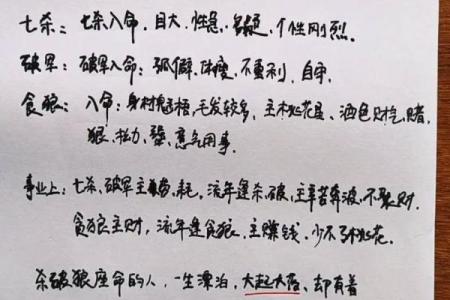 七杀：七杀入命，目大、性急、多疑，个性刚烈。
破军：破军入命：孤僻、体瘦、不重利，自牢
贪狼：入命：身材魁梧，毛发较多，主木桃花星、酒色财气，赌，
狠、拉力、意气用事。
事业上：七杀、破军主耗，流年逢杀、破，主辛苦奔波，不聚财.
贪狼主财，流年逢贪狼，主赚钱，少不了桃花。
杀破狼座命的人，一生漂泊，大起大落、却有着